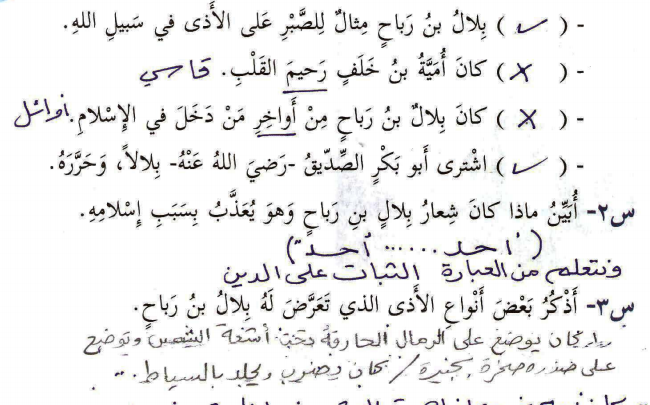 - ( ✓ ) بِلالُ بنُ رَباحٍ مِثالٌ لِلصَّبْرِ عَلى الأَذى في سَبيلِ اللهِ.
- ( ✗ ) كانَ أُمَيَّةُ بنُ خَلَفٍ رَحيمَ القَلْبِ. قاسي
- ( ✗ ) كانَ بِلالٌ بنُ رَباحٍ مِنْ أَواخِرِ مَنْ دَخَلَ في الإِسْلامِ. أوائل
- ( ✓ ) اشْترى أَبو بَكْرٍ الصِّدّيقُ -رَضيَ اللهُ عَنْهُ- بِلالاً، وَحَرَّرَهُ.
س٢- أُبَيِّنُ ماذا كانَ شِعارُ بِلالِ بنِ رَباحٍ وَهوَ يُعَذَّبُ بِسَبَبِ إِسْلامِهِ.
( "أحد ...... أحد" )
ونتعلم من العبارة الثبات على الدين
س٣- أَذْكُرُ بَعْضَ أَنْواعِ الأَذى الذي تَعَرَّضَ لَهُ بِلالُ بنُ رَباحٍ.
كان يوضع على الرمال الحارقة تحت أشعة الشمس وتوضع
على صدره صخرة كبيرة / كان يضرب ويجلد بالسياط.